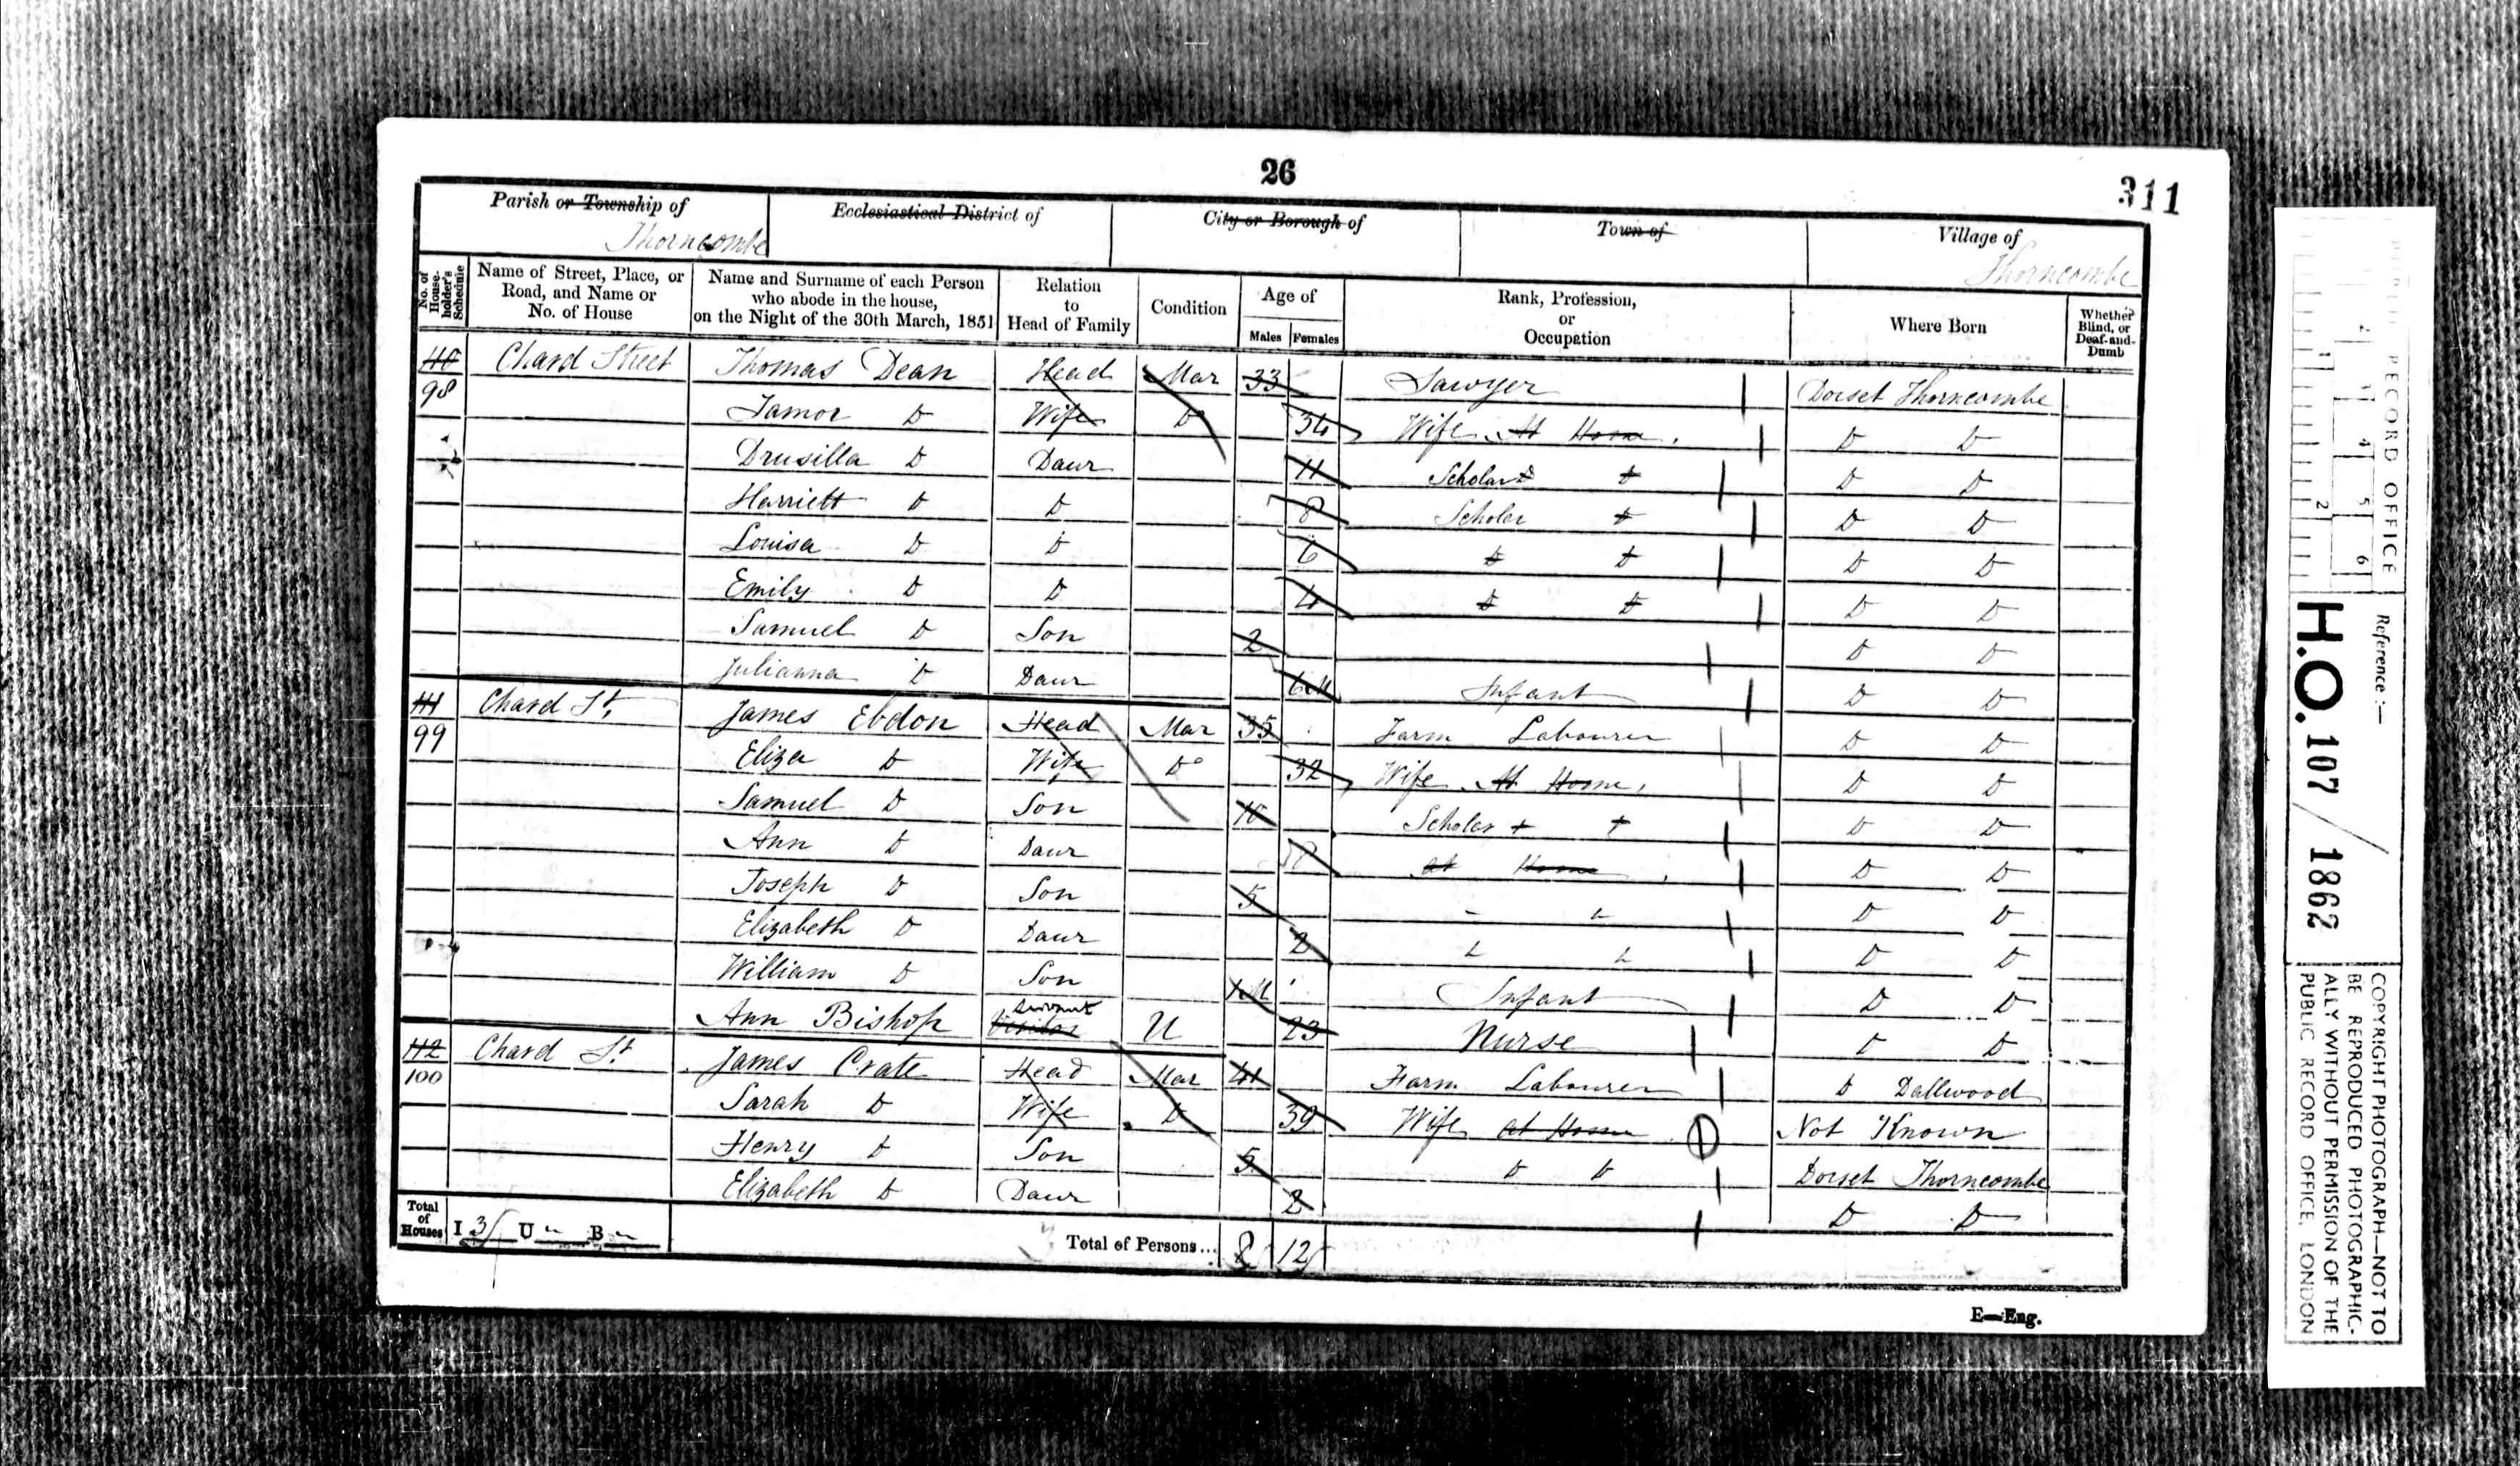 26
311
Parish or Township of
Thorncombe
Ecclesiastical District of
City or Borough of
Town of
Village of
Thorncombe
No. of House-holder's Schedule
Name of Street, Place, or Road, and Name or No. of House
Name and Surname of each Person who abode in the house, on the Night of the 30th March, 1851
Relation to Head of Family
Condition
Age of
Males
Females
Rank, Profession, or Occupation
Where Born
Whether Blind, or Deaf-and-Dumb
110 98 Chard Street Thomas Dean Head Mar 33 Sawyer Dorset Thorncombe
Tamor Do Wife Do 34 Wife At Home. Do Do
Drusilla Do Daur 11 Scholar Do Do
Harriett Do Do 8 Scholar Do Do
Louisa Do Do 6 Do Do Do Do
Emily Do Do 4 Do Do Do Do
Samuel Do Son 2 Do Do
Julianna Do Daur 6M Infant Do Do
111 99 Chard St. James Ebdon Head Mar 35 Farm Labourer Do Do
Eliza Do Wife Do 32 Wife At Home. Do Do
Samuel Do Son 10 Scholar Do Do
Ann Do Daur 8 at Home Do Do
Joseph Do Son 5 Do Do
Elizabeth Do Daur 2 Do Do
William Do Son 1M Infant Do Do
Ann Bishop Visitor Servant U 23 Nurse Do Do
112 100 Chard St. James Crate Head Mar 41 Farm Labourer Do Dallwood
Sarah Do Wife Do 39 Wife at Home Not Known
Henry Do Son 5 Do Do Dorset Thorncombe
Elizabeth Do Daur 2 Do Do
Total of Houses
I 3 U " B "
Total of Persons... 8 12
E—Eng.
PUBLIC RECORD OFFICE
1 2 4 5 6
Reference :—
H.O. 107 / 1862
COPYRIGHT PHOTOGRAPH—NOT TO
BE REPRODUCED PHOTOGRAPHIC-
ALLY WITHOUT PERMISSION OF THE
PUBLIC RECORD OFFICE, LONDON